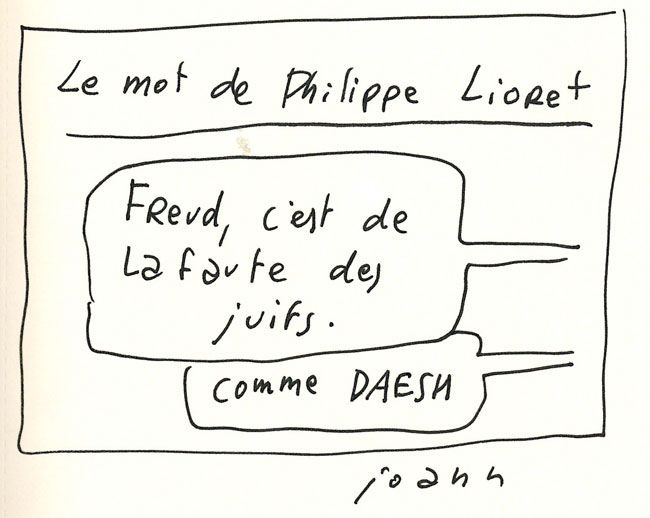 Le mot de Philippe Lioret
Freud, c'est de
La faute des
juifs.
comme DAESH
joann